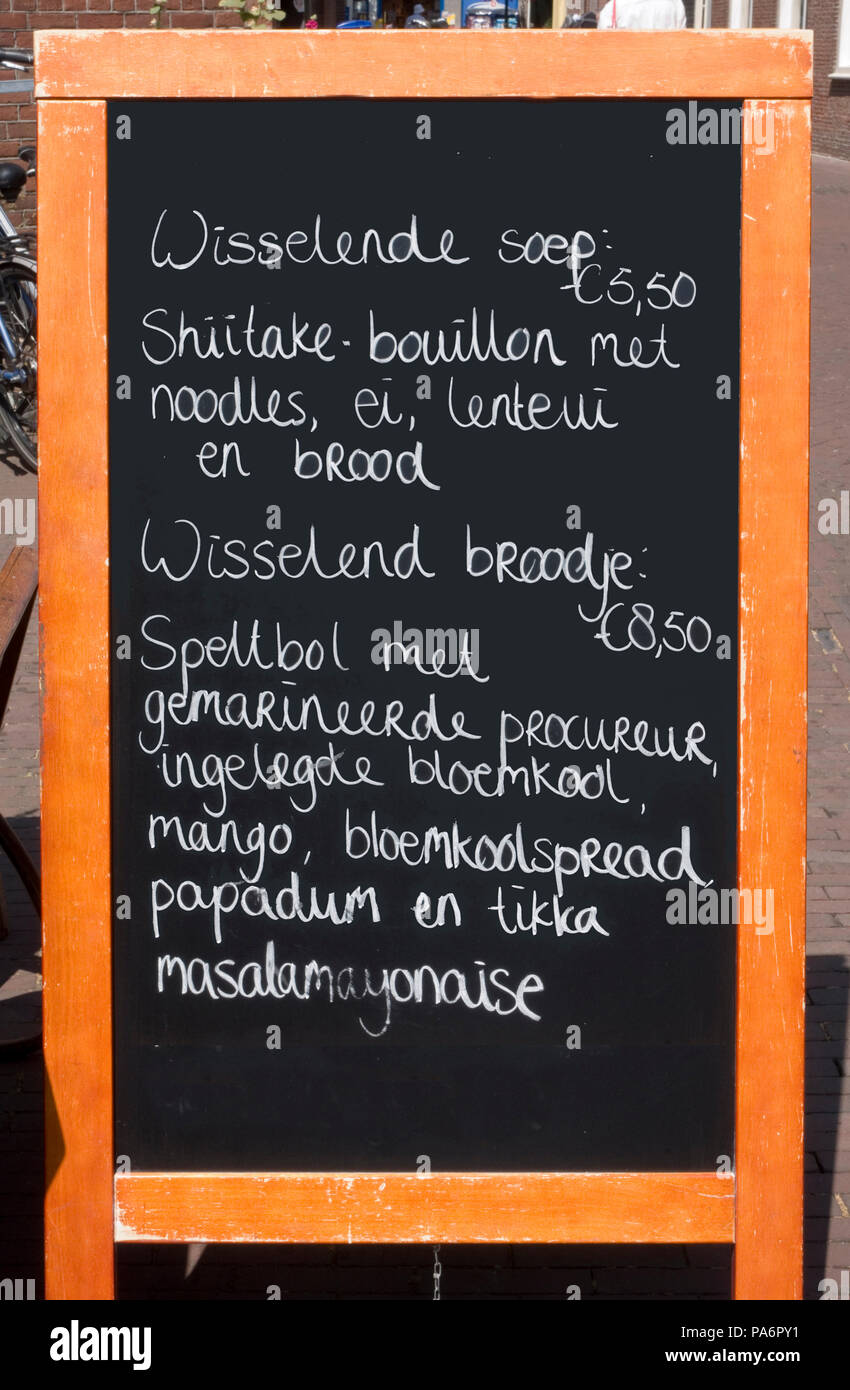 Wisselende soep:
€5,50
Shiitake-bouillon met
noodles, ei, lenteui
en brood
Wisselend broodje:
€8,50
Speltbol met
gemarineerde procureur,
ingelegde bloemkool,
mango, bloemkoolspread,
papadum en tikka
masalamayonaise
alamy
Image ID: PA6PY1
www.alamy.com